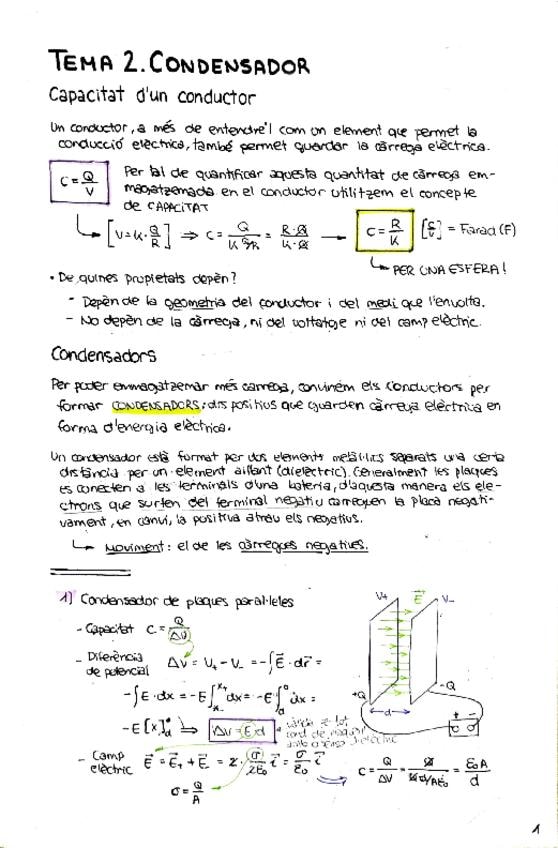 TEMA 2. CONDENSADOR
Capacitat d'un conductor
Un conductor, a més de entendre'l com un element que permet la
conducció elèctrica, també permet guardar la càrrega elèctrica.
C = Q/V
Per tal de quantificar aquesta quantitat de càrrega em-
magatzemada en el conductor utilitzem el concepte
de CAPACITAT
[V = K · Q/R] ⇒ C = Q / (K Q/R) = R·Q / K·Q → C = R/K [C/V] = Farad (F)
PER UNA ESFERA!
• De quines propietats depèn?
- Depèn de la geometria del conductor i del medi que l'envolta.
- No depèn de la càrrega, ni del voltatge ni del camp elèctric.
Condensadors
Per poder emmagatzemar més càrrega, convinem els conductors per
formar CONDENSADORS: dispositius que guarden càrrega elèctrica en
forma d'energia elèctrica.
Un condensador està format per dos elements metàl·lics separats una certa
distància per un element aïllant (dielèctric). Generalment les plaques
es conecten a les terminals d'una bateria, d'aquesta manera els ele-
ctrons que surten del terminal negatiu carreguen la placa negati-
vament, en canvi, la positiva atrau els negatius.
Moviment: el de les càrregues negatives.
1) Condensador de plaques paral·leles
V+ E⃗ V-
- Capacitat C = Q/ΔV
- Diferència de potencial ΔV = V+ - V- = -∫E⃗ · dr⃗ =
-∫E · dx = -E∫dx = -E∫dx =
+Q -Q
d
+ -
-E[x] ⇒ ΔV = E·d
- Camp elèctric E⃗ = E⃗+ + E⃗- = 2 · σ/2ε₀ i⃗ = σ/ε₀ i⃗
C = Q/ΔV = = ε₀A/d
σ = Q/A
1